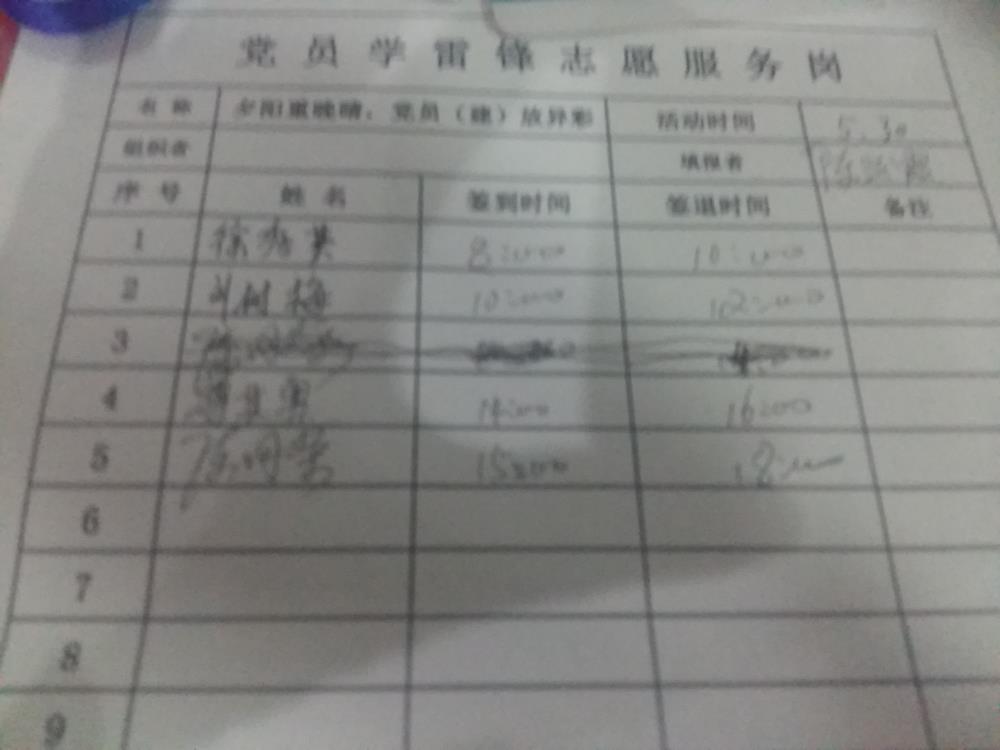 党员学雷锋志愿服务岗
名称 夕阳重晚晴，党员（建）放异彩 活动时间 5.30
组织者 填报者
序号 姓名 签到时间 签退时间 备注
1 徐秀英 8:00 10:00
2 刘树梅 10:00 12:00
3
4 14:00 16:00
5 15:00 18:00
6
7
8
9